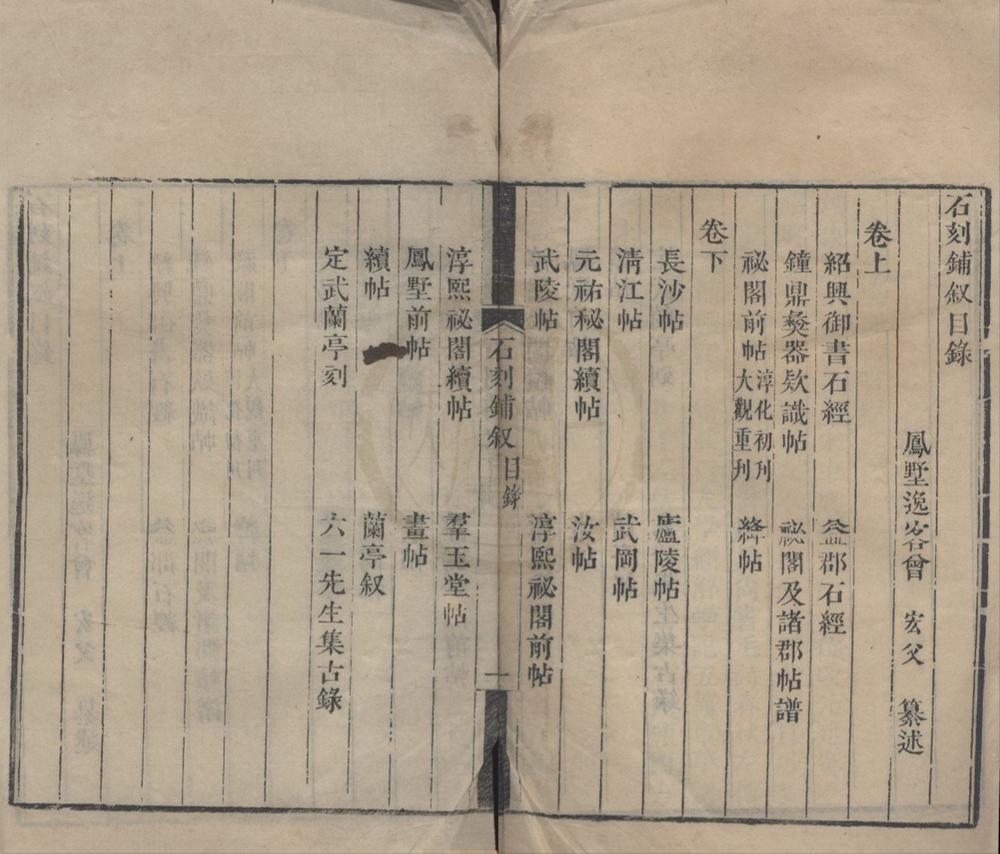 石刻鋪叙目錄
鳳墅逸客曾　宏父　纂述
卷上
紹興御書石經　益郡石經
鐘鼎彝器欵識帖　祕閣及諸郡帖譜
祕閣前帖 淳化初刋 大觀重刋　絳帖
卷下
長沙帖　廬陵帖
清江帖　武岡帖
元祐秘閣續帖　汝帖
武陵帖　淳熙祕閣前帖
石刻鋪叙 目錄　一
淳熙祕閣續帖　羣玉堂帖
鳳墅前帖　畫帖
續帖　蘭亭叙
定武蘭亭刻　六一先生集古錄